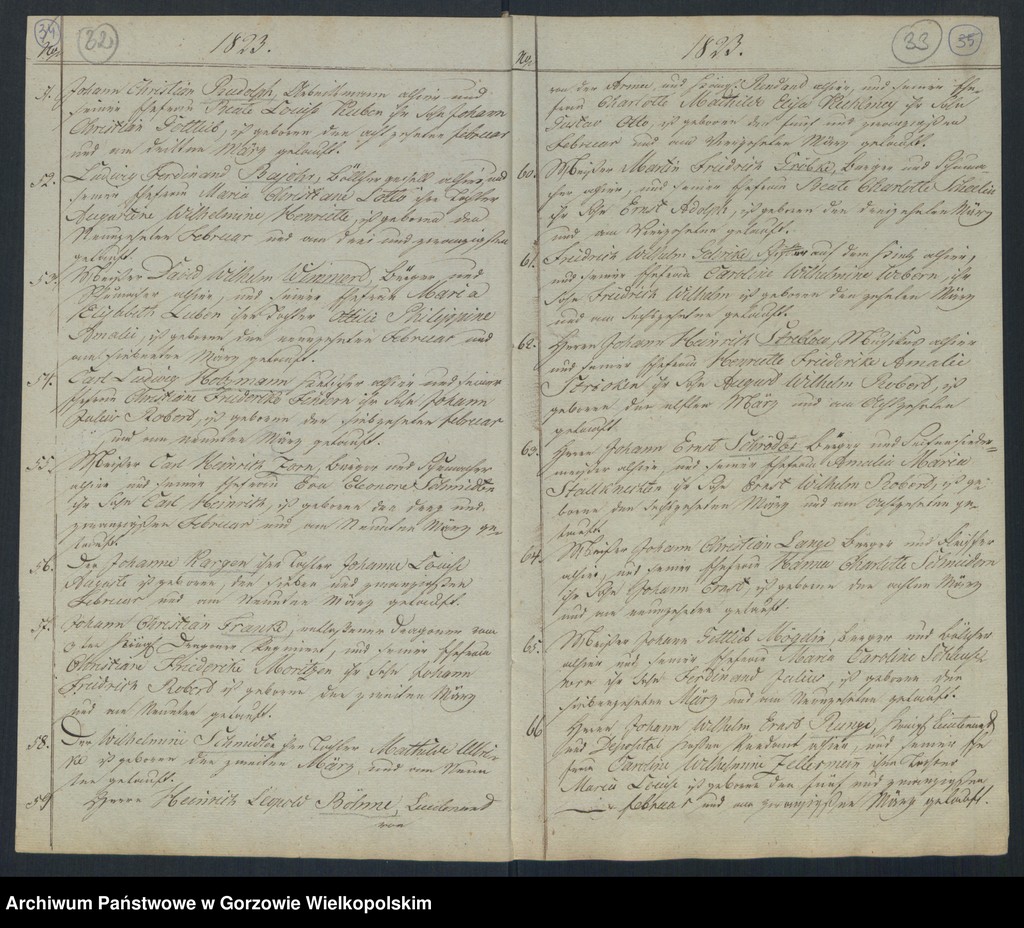 34
32
1823.
No.
51. Johann Christian Rudolph, Arbeitsmann allhier und
seiner Ehefrau Beate Louise Ruben ihr Sohn Johann
Christian Gottlieb, ist geboren den acht zehnten Februar
und am dritten März getauft.
52. Ludwig Ferdinand Bajohr, Böttcher gesell allhier und
seiner Ehefrau Maria Christiane ihre Tochter
Augustine Wilhelmine Henriette, ist geboren den
Neunzehnten Februar und am drei und zwanzigsten
getauft
53. Meister David Wilhelm Wimmert, Bürger und
allhier, und seiner Ehefrau Maria
Elisabeth Luben ihre Tochter Ottilie Philippine
Amalie, ist geboren den neunzehnten Februar und
am siebenten März getauft.
54. Carl Ludwig Holzmann allhier und seiner
Ehefrau Christiane Friderike ihr Sohn Johann
Julius Robert, ist geboren den siebzehnten Februar
und am neunten März getauft.
55. Meister Carl Heinrich Zorn, Bürger und Schumacher
allhier und seiner Ehefrau Eva Eleonore Schmidten
ihr Sohn Carl Heinrich, ist geboren den drey und
zwanzigsten Februar und am Neunten März ge-
tauft.
56. Der Johanne Kargen ihre Tochter Johanne Louise
Auguste ist geboren, den sieben und zwanzigsten
Februar und am Neunten März getauft.
57. Johann Christian Frank, entlassener Dragoner vom
Regiment, und seiner Ehefrau
Christiane Friedericke Moritzen ihr Sohn Johann
Friedrich Robert ist geboren den zweiten März
und am Neunten getauft.
58. Der Wilhelmine Schmidten ihre Tochter Mathilde Ulri-
ke ist geboren den zweiten März, und am Neun
ten getauft.
59 Herrn Heinrich Leopold Böhme, Lieutenant
von
33
35
1823.
No.
von der Armee, und Rendant allhier, und seiner Ehe-
frau Charlotte Mathilde ihr Sohn
Gustav Otto, ist geboren den fünf und zwanzigsten
Februar und am Vierzehnten März getauft.
60. Meister Martin Friedrich Grabke, Bürger und Schuma-
cher allhier, und seiner Ehefrau Beate Charlotte
ihr Sohn Ernst Adolph, ist geboren den dreizehnten März
und am Vierzehnten getauft.
61. Friedrich Wilhelm allhier,
und seiner Ehefrau Caroline Wilhelmine Weborn, ihr
Sohn Friedrich Wilhelm ist geboren den zehnten März
und am Sechszehnten getauft.
62. Herrn Johann Heinrich Musikus allhier
und seiner Ehefrau Henriette Friederike Amalie
ihr Sohn August Wilhelm Robert, ist
geboren den elften März und am Achtzehnten
getauft
63. Herrn Johann Ernst Schröder Bürger und Seifensieder-
meister allhier, und seiner Ehefrau Amalia Maria
Stallknechten ihr Sohn Ernst Wilhelm Robert, ist ge-
boren den Sechszehnten März und am Achtzehnten ge-
tauft.
64. Meister Johann Christian Lange Bürger und Fleischer
allhier, und seiner Ehefrau Hanna Charlotte Schneidern
ihr Sohn Johann Ernst, ist geboren den achten März
und am neunzehnten getauft.
65. Meister Johann Gottlieb Mögelin, Bürger und Böttcher
allhier und seiner Ehefrau Maria Caroline
ihr Sohn Ferdinand Julius, ist geboren den
siebenzehnten März und am Neunzehnten getauft.
66 Herrn Johann Wilhelm Ernst Runge, Lieutenant
und Depositen Kassen Rendant allhier, und seiner Ehe
frau Caroline Wilhelmine Zellerman ihre Tochter
Maria Louise ist geboren den fünf und zwanzigsten
Februar und am zwanzigsten März getauft.
Archiwum Państwowe w Gorzowie Wielkopolskim